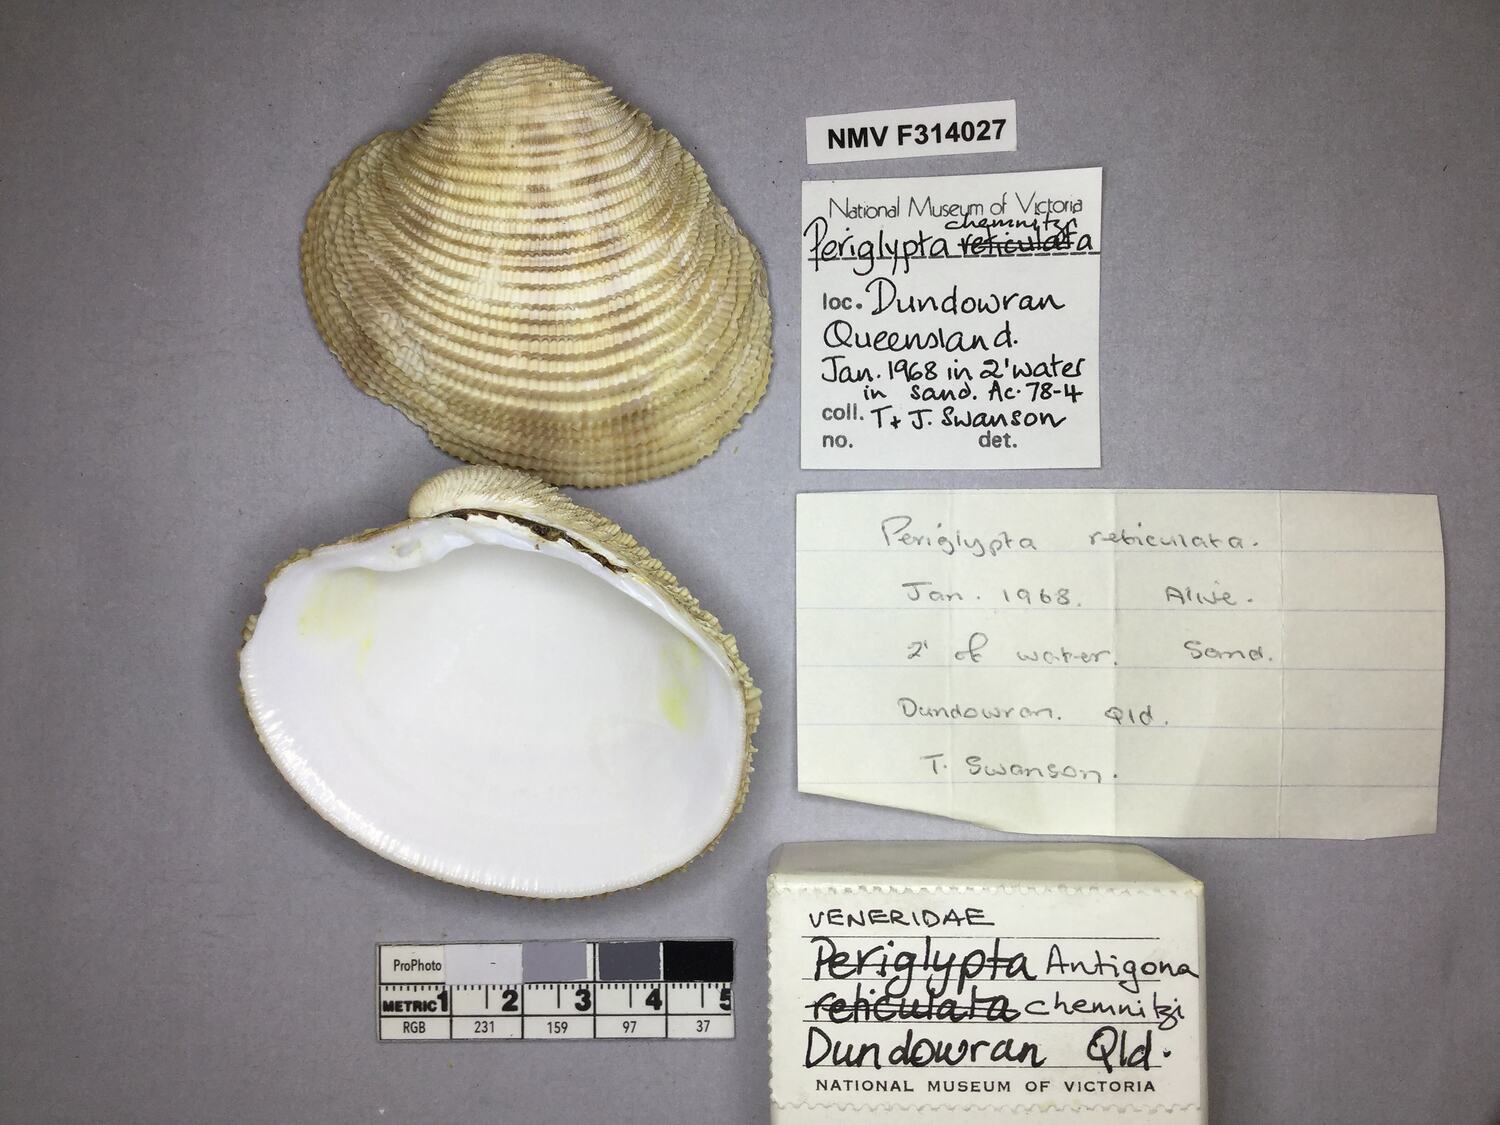 NMV F314027
National Museum of Victoria
chemnitzi
Periglypta reticulata
loc. Dundowran
Queensland.
Jan. 1968 in 2' water
in sand. Ac. 78-4
coll. T + J. Swanson
no. det.
Periglypta reticulata.
Jan. 1968. Alive.
2' of water. Sand.
Dundowran. Qld.
T. Swanson.
VENERIDAE
Periglypta Antigona
reticulata chemnitzi
Dundowran Qld.
NATIONAL MUSEUM OF VICTORIA
ProPhoto -
METRIC 1 2 3 4 5
RGB 231 159 97 37